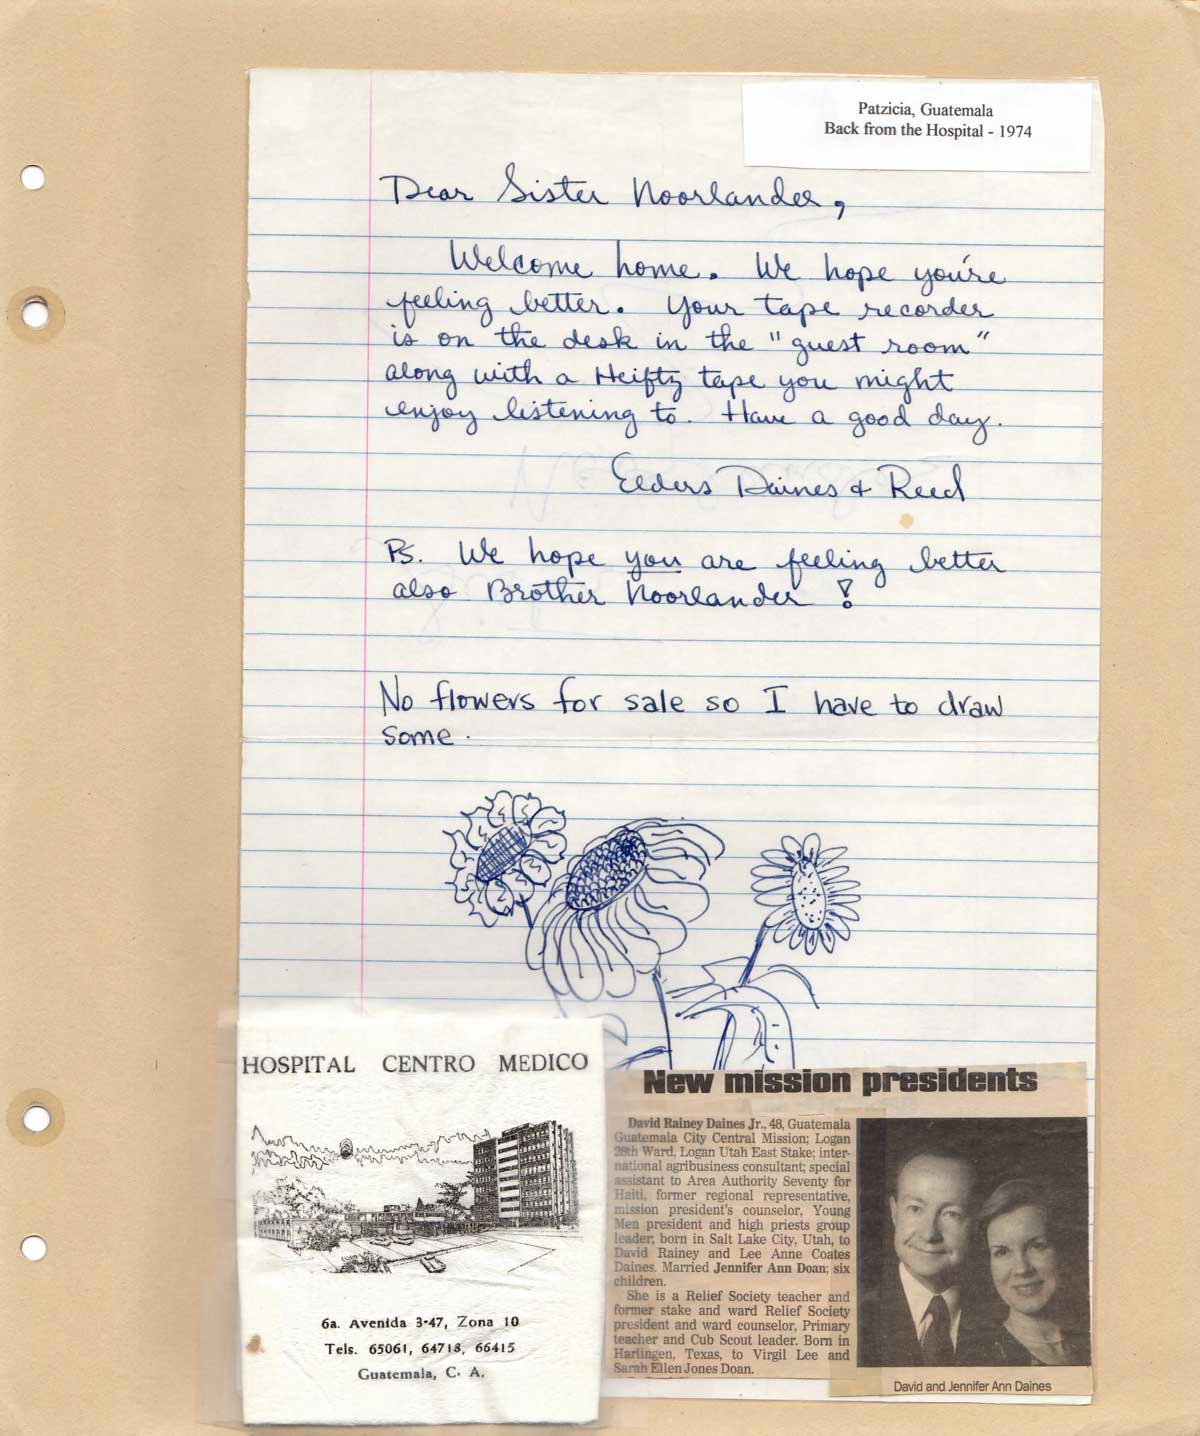 Patzicia, Guatemala
Back from the Hospital - 1974
Dear Sister Noorlander,
Welcome home. We hope you're
feeling better. Your tape recorder
is on the desk in the "guest room"
along with a Heiftz tape you might
enjoy listening to. Have a good day.
Elders Daines & Reed
Ps. We hope you are feeling better
also Brother Noorlander!
No flowers for sale so I have to draw
some.
HOSPITAL CENTRO MEDICO
6a. Avenida 3-47, Zona 10
Tels. 65061, 64718, 66415
Guatemala, C. A.
New mission presidents
David Rainey Daines Jr., 48, Guatemala
Guatemala City Central Mission; Logan
28th Ward, Logan Utah East Stake; inter-
national agribusiness consultant; special
assistant to Area Authority Seventy for
Haiti, former regional representative,
mission president's counselor, Young
Men president and high priests group
leader; born in Salt Lake City, Utah, to
David Rainey and Lee Anne Coates
Daines. Married Jennifer Ann Doan; six
children.
She is a Relief Society teacher and
former stake and ward Relief Society
president and ward counselor, Primary
teacher and Cub Scout leader. Born in
Harlingen, Texas, to Virgil Lee and
Sarah Ellen Jones Doan.
David and Jennifer Ann Daines